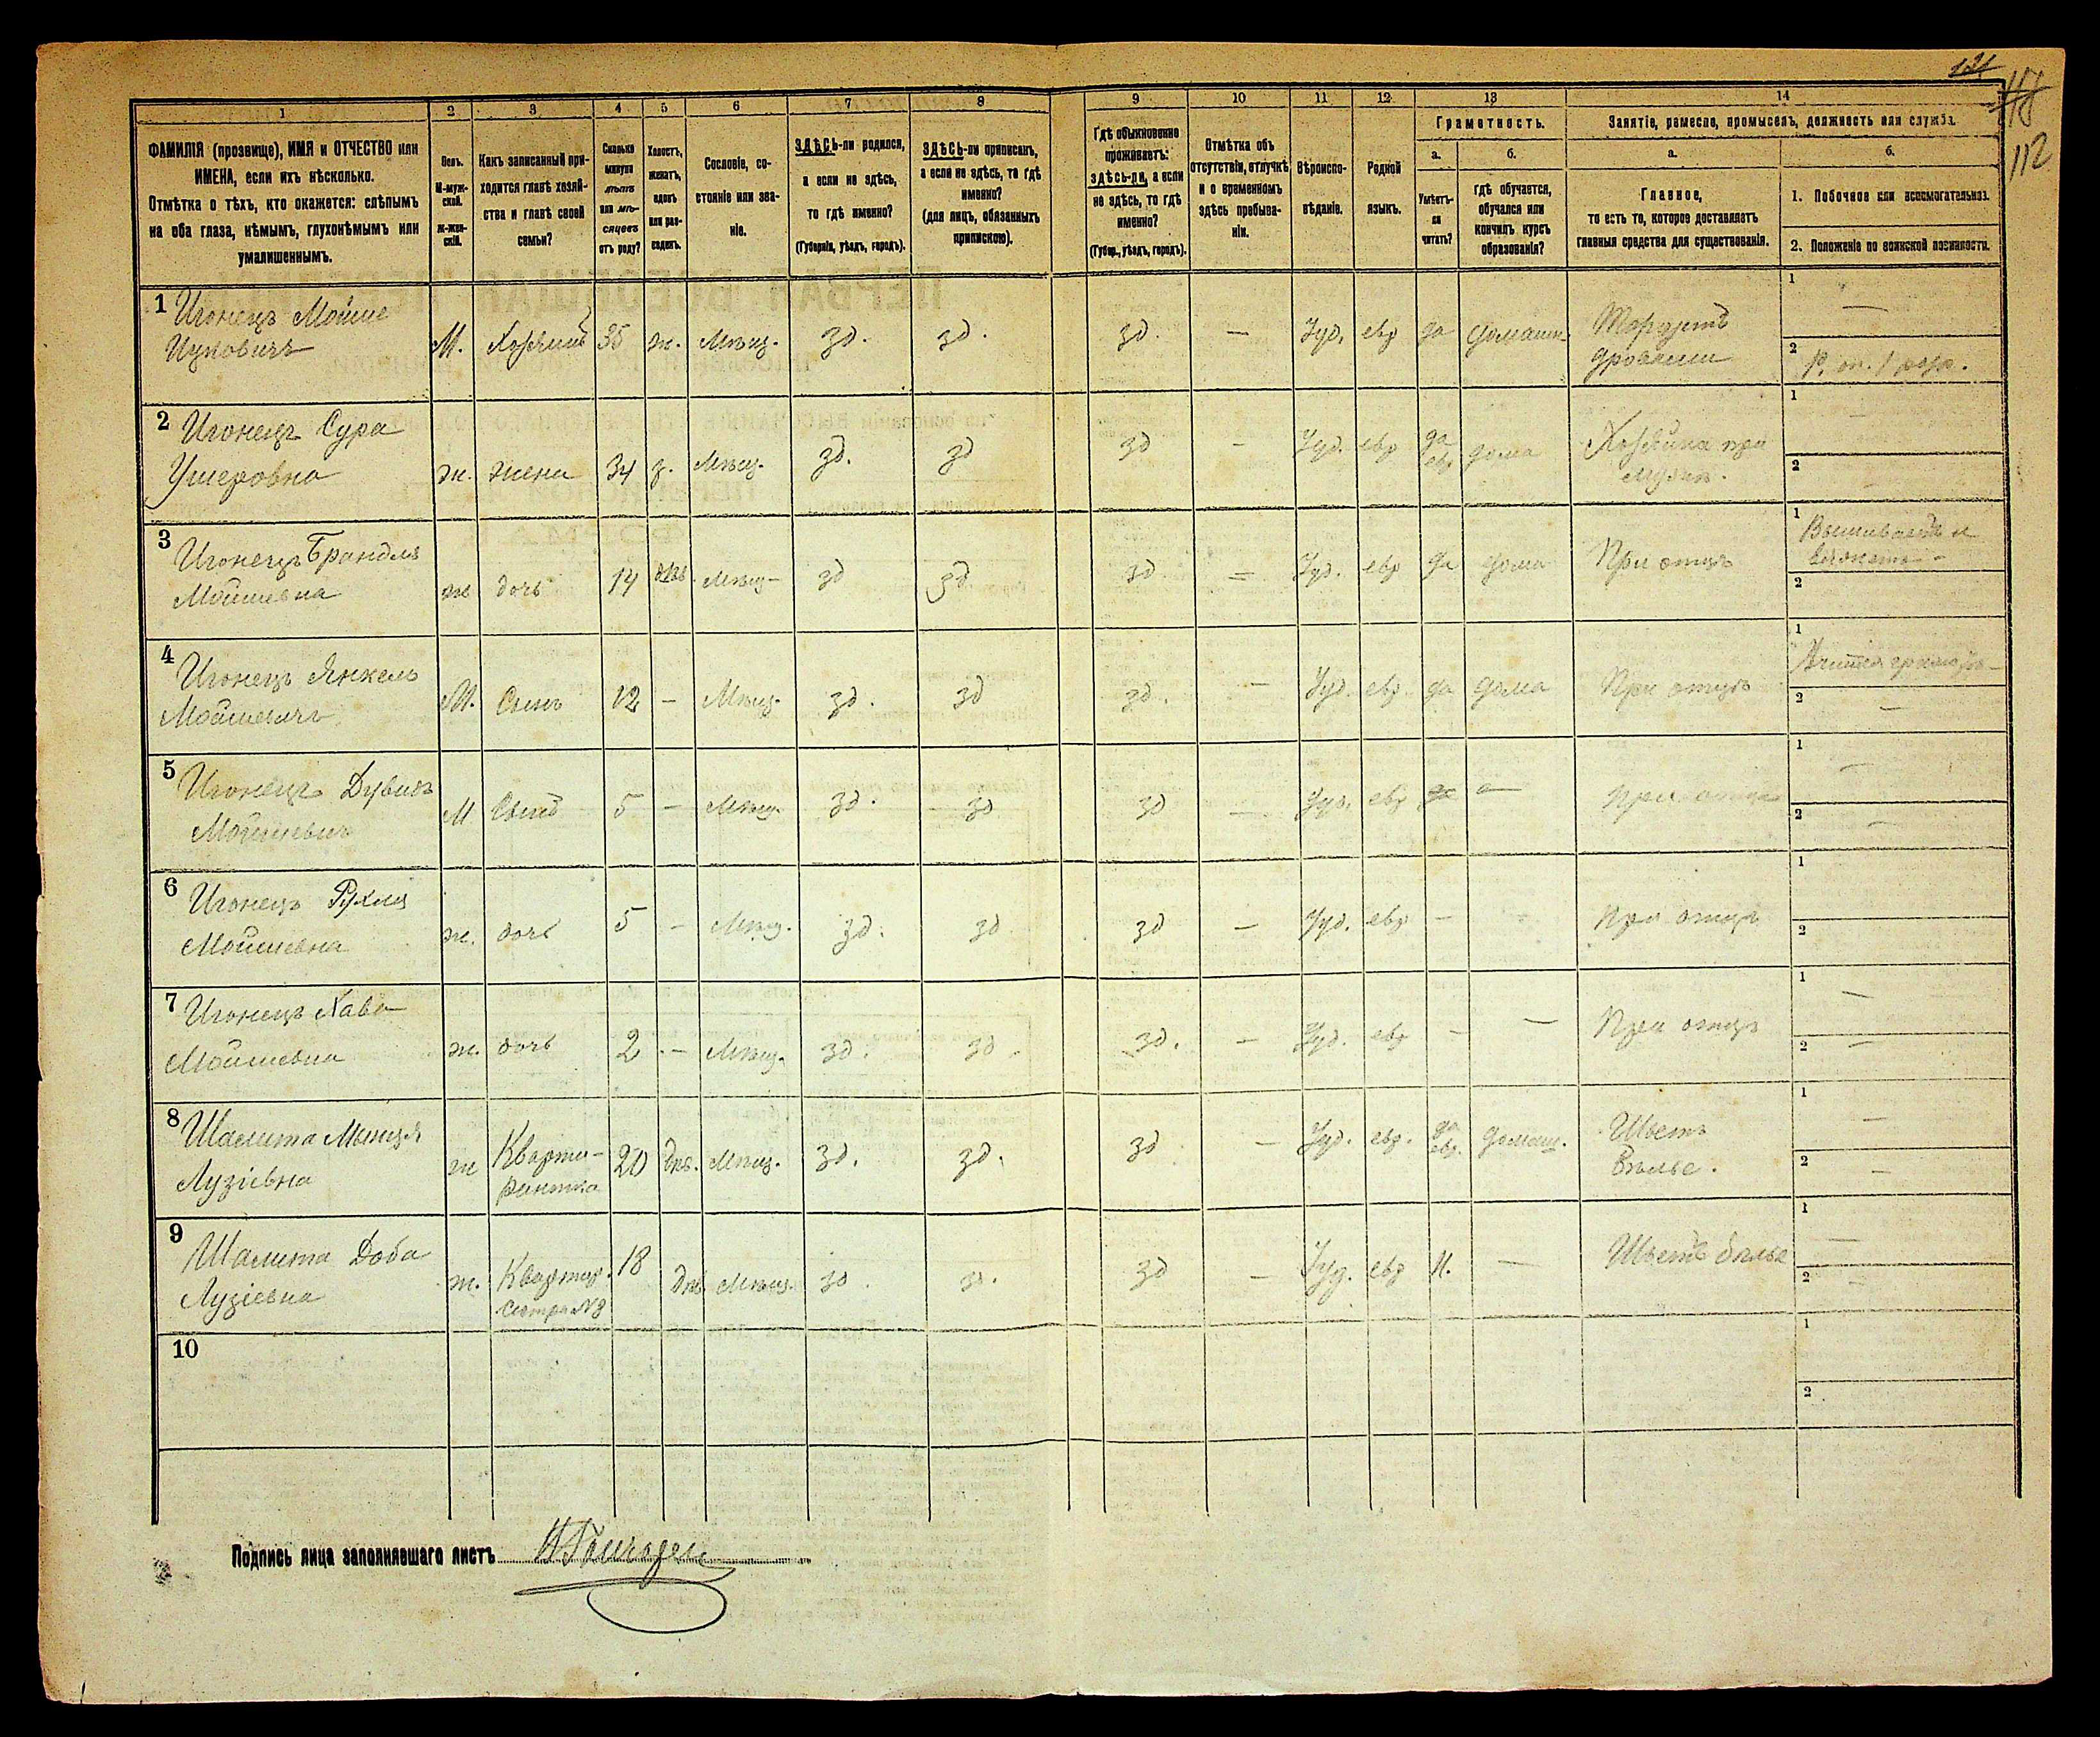 121
118
112
1
2
3
4
5
6
7
8
9
10
11
12
13
14
ФАМИЛІЯ (прозвище), ИМЯ и ОТЧЕСТВО или
ИМЕНА, если ихъ нѣсколько.
Отмѣтка о тѣхъ, кто окажется: слѣпымъ
на оба глаза, нѣмымъ, глухонѣмымъ или
умалишеннымъ.
Полъ.
М-муж-
ской.
ж-жен-
скій.
Какъ записанный при-
ходится главѣ хозяй-
ства и главѣ своей
семьи?
Сколько
минуло
лѣтъ
или мѣ-
сяцевъ
отъ роду?
Холостъ,
женатъ,
вдовъ
или раз-
веденъ.
Сословіе, со-
стояніе или зва-
ніе.
ЗДѢСЬ-ли родился,
а если не здѣсь,
то гдѣ именно?
(Губернія, уѣздъ, городъ).
ЗДѢСЬ-ли приписанъ,
а если не здѣсь, то гдѣ
именно?
(для лицъ, обязанныхъ
припискою).
Гдѣ обыкновенно
проживаетъ:
здѣсь-ли, а если
не здѣсь, то гдѣ
именно?
(Губер., уѣздъ, городъ).
Отмѣтка объ
отсутствіи, отлучкѣ
и о временномъ
здѣсь пребыва-
ніи.
Вѣроиспо-
вѣданіе.
Родной
языкъ.
Грамотность.
а.
б.
Умѣетъ-
ли
читать?
гдѣ обучается,
обучался или
кончилъ курсъ
образованія?
Занятіе, ремесло, промыселъ, должность или служба.
а.
б.
Главное,
то есть то, которое доставляетъ
главныя средства для существованія.
1. Побочное или вспомогательное.
2. Положеніе по воинской повинности.
1 Игонецъ Мойше
Ицковичъ
М. Хозяинъ 35 ж. Мѣщ. зд. зд. зд. — Іуд. евр да домашн. Торгуетъ
дровами
1 —
2 Р. оп. 1 разр.
2 Игонецъ Сура
Ушеровна
ж. жена 34 з. Мѣщ. зд. зд зд - Іуд. евр да
евр дома Хозяйка при
мужѣ.
1
2
3 Игонецъ Брандля
Мойшевна
ж дочь 14 двв. Мѣщ- зд зд зд = Іуд. евр да дома При отцѣ
1 Вышиваетъ и
вяжетъ -
2
4 Игонецъ Янкель
Мойшевичъ
М. Сынъ 12 - Мѣщ. зд. зд зд. - Іуд. евр. да дома При отцѣ
1
2 —
5 Игонецъ Дувидъ
Мойшевич
М Сынъ 5 - Мѣщ. зд. зд зд — Іуд. евр При отцѣ
1 —
2 —
6 Игонецъ Рухля
Мойшевна
ж. дочь 5 - Мѣщ. зд. зд зд — Іуд. евр - - При отцѣ
1
2
7 Игонецъ Хава
Мойшевна
ж. дочь 2 - Мѣщ. зд. зд. зд. — Іуд. евр — — При отцѣ
1 —
2 —
8 Шалита
Лузіевна
ж Кварти-
рантка 20 двв. Мѣщ. зд. зд. зд — Іуд. евр. да
евр. домаш. Шьетъ
Бѣлье.
1 —
2 —
9 Шалита Доба
Лузіевна
ж. Квартир.
Сестра №8 18 двв. Мѣщ. зд. зд. зд — Іуд. евр Н. — Шьетъ бѣлье
1 —
2 —
10
1
2
Подпись лица заполнявшаго листъ